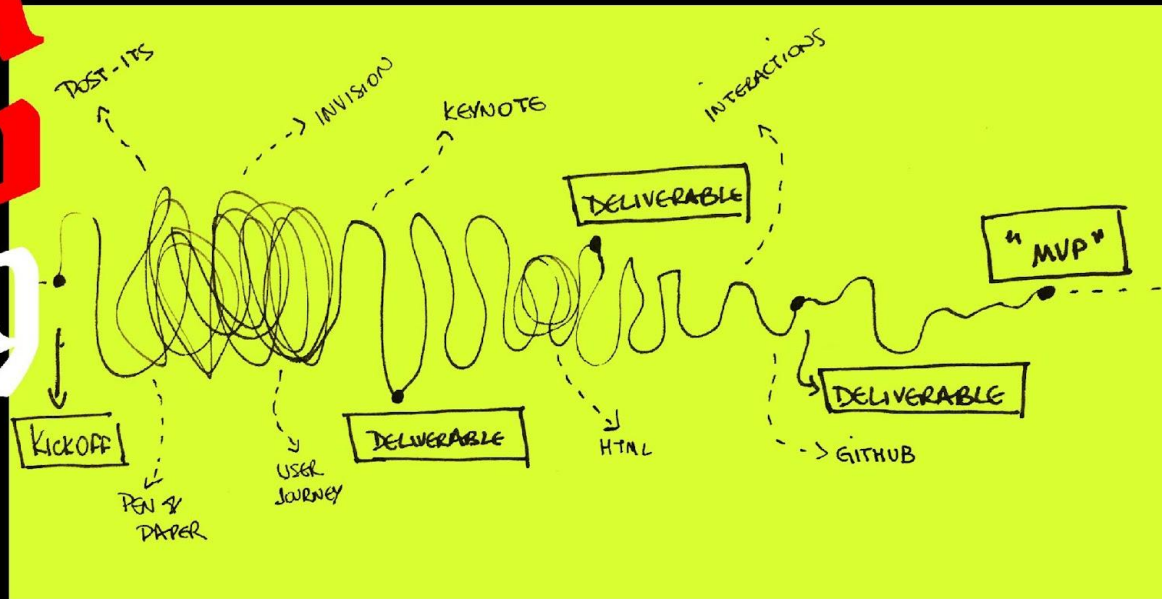 POST-ITS
INVISION
KEYNOTE
INTERACTIONS
DELIVERABLE
"MVP"
KICKOFF
PEN &
PAPER
USER
JOURNEY
DELIVERABLE
HTML
DELIVERABLE
GITHUB